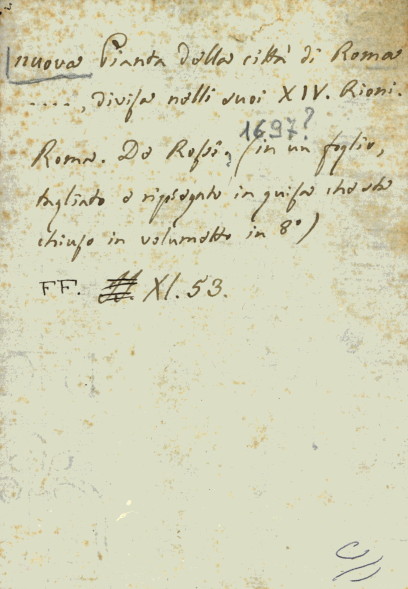 nuova Pianta della città di Roma
...., divisa nelli suoi XIV. Rioni.
1697?
Roma. De Rossi, (in un foglio,
tagliato e ripiegato in guisa che sta
chiuso in volumetto in 8º)
FF. XI. 53.